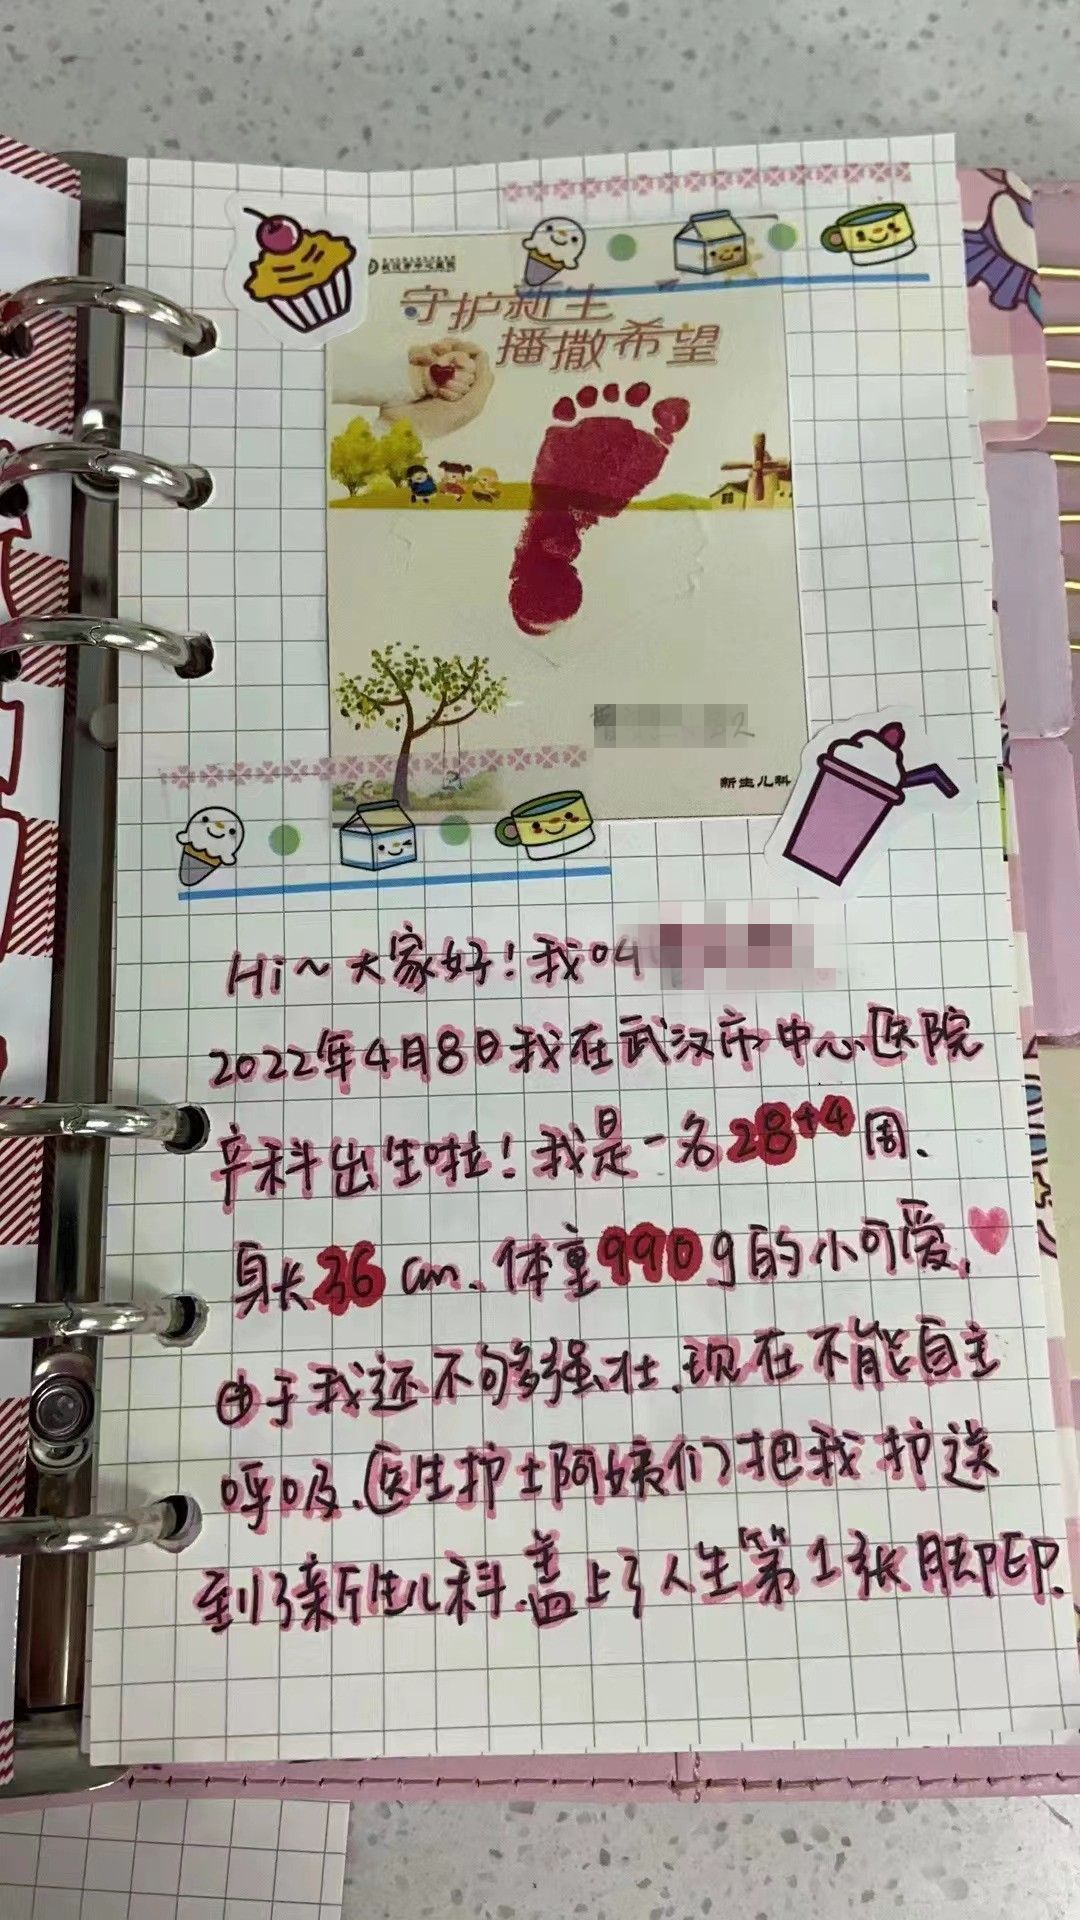 守护新生
播撒希望
新生儿科
Hi~大家好!我叫
2022年4月8日我在武汉市中心医院
产科出生啦!我是一名28+4周、
身长36cm、体重990g的小可爱,
由于我还不够强壮,现在不能自主
呼吸、医生护士阿姨们把我护送
到了新生儿科,盖上了人生第1张脚印.